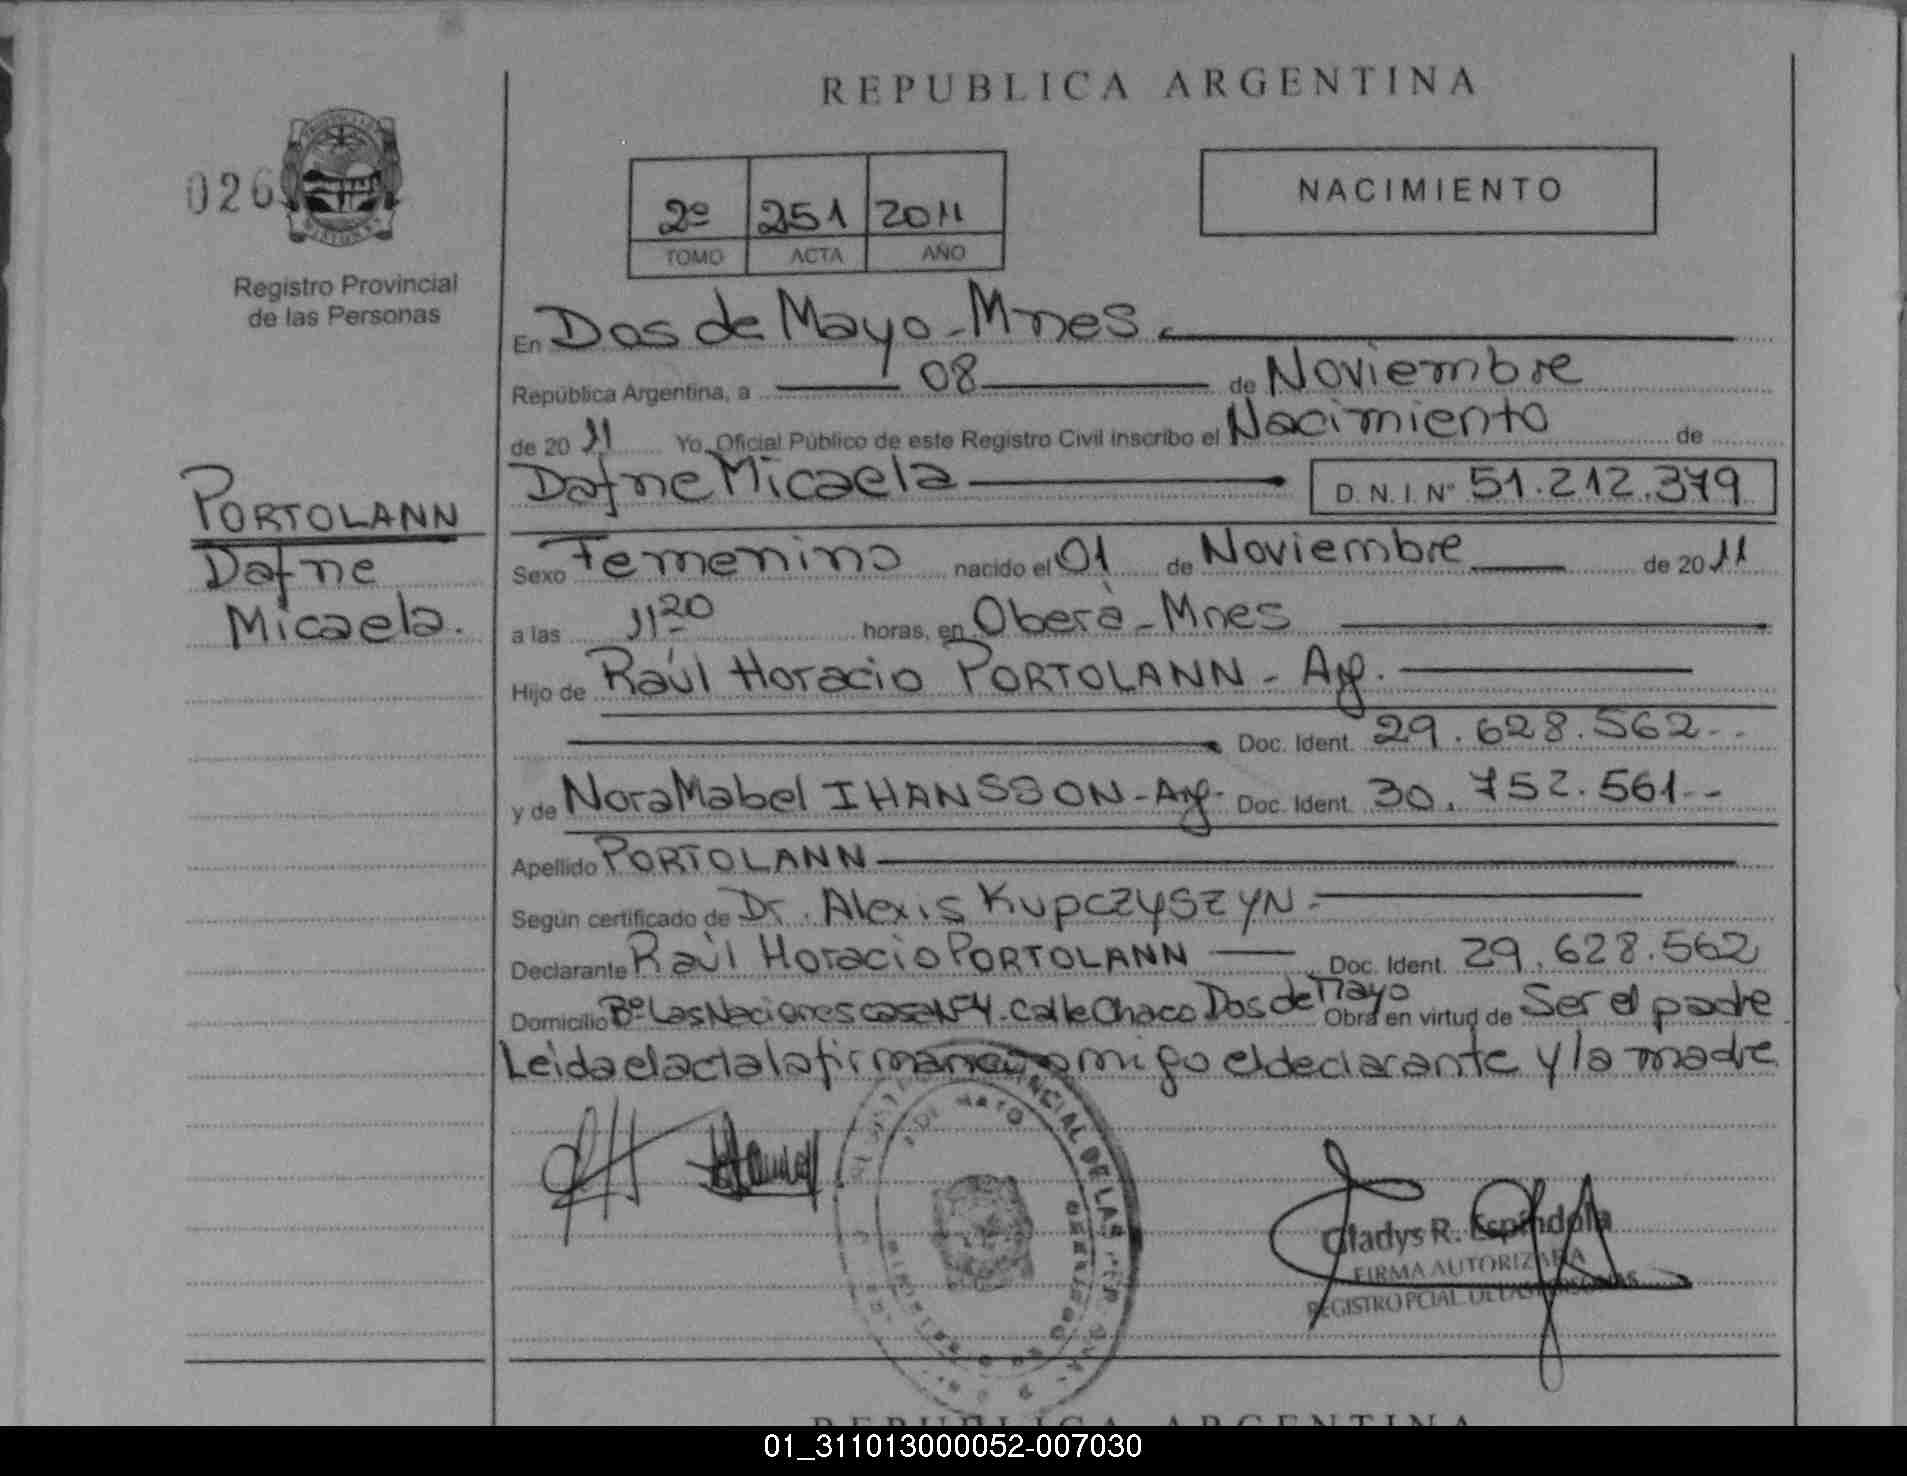 REPUBLICA ARGENTINA
026
NACIMIENTO
2º 251 2011
TOMO ACTA AÑO
Registro Provincial
de las Personas
En Dos de Mayo - Mnes.
República Argentina, a 08 de Noviembre
de 2011 Yo, Oficial Público de este Registro Civil inscribo el Nacimiento de
Dafne Micaela D. N. I. Nº 51.212.379
PORTOLANN
Dafne
Micaela.
Sexo Femenino nacido el 01 de Noviembre de 2011
a las 11 20 horas, en Oberà - Mnes
Hijo de Raúl Horacio PORTOLANN - Arg.
Doc. Ident. 29.628.562--
y de Nora Mabel IHANSSON - Arg- Doc. Ident. 30.752.561--
Apellido PORTOLANN
Según certificado de Dr. Alexis KUPCZYSZYN -
Declarante Raúl Horacio PORTOLANN Doc. Ident. 29.628.562
Domicilio Bº Las Naciones casa Nº4. Calle Chaco Dos de Mayo Obra en virtud de Ser el padre
Leida el acta la firman conmigo el declarante y la madre
2 DE MAYO
PROVINCIAL DE LAS
MISIONES
Gladys R. Espíndola
FIRMA AUTORIZADA
REGISTRO PCIAL. DE LAS PERSONAS
REPUBLICA ARGENTINA
01_311013000052-007030